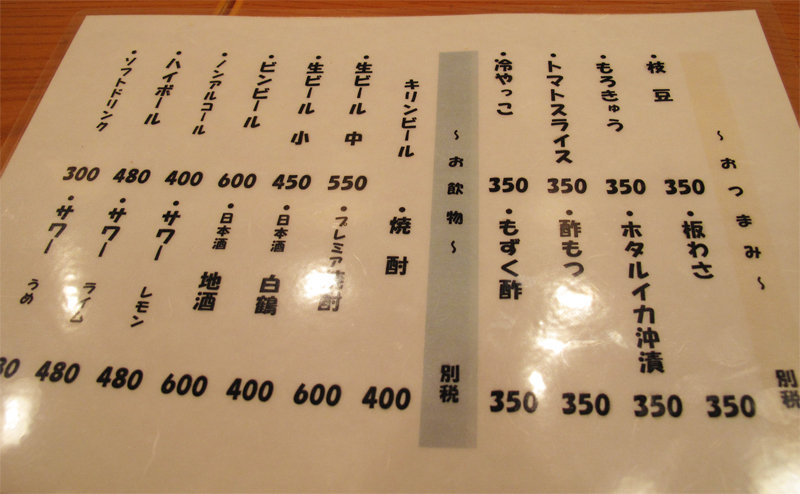 ～おつまみ～ 別税
・枝豆 350
・もろきゅう 350
・トマトスライス 350
・冷やっこ 350
・板わさ 350
・ホタルイカ沖漬 350
・酢もつ 350
・もずく酢 350
～お飲物～ 別税
キリンビール
・生ビール 中 550
・生ビール 小 450
・ビンビール 600
・ノンアルコール 400
・ハイボール 480
・ソフトドリンク 300
・焼酎 400
・プレミア焼酎 600
・日本酒 白鶴 400
・日本酒 地酒 600
・サワー レモン 480
・サワー ライム 480
・サワー うめ